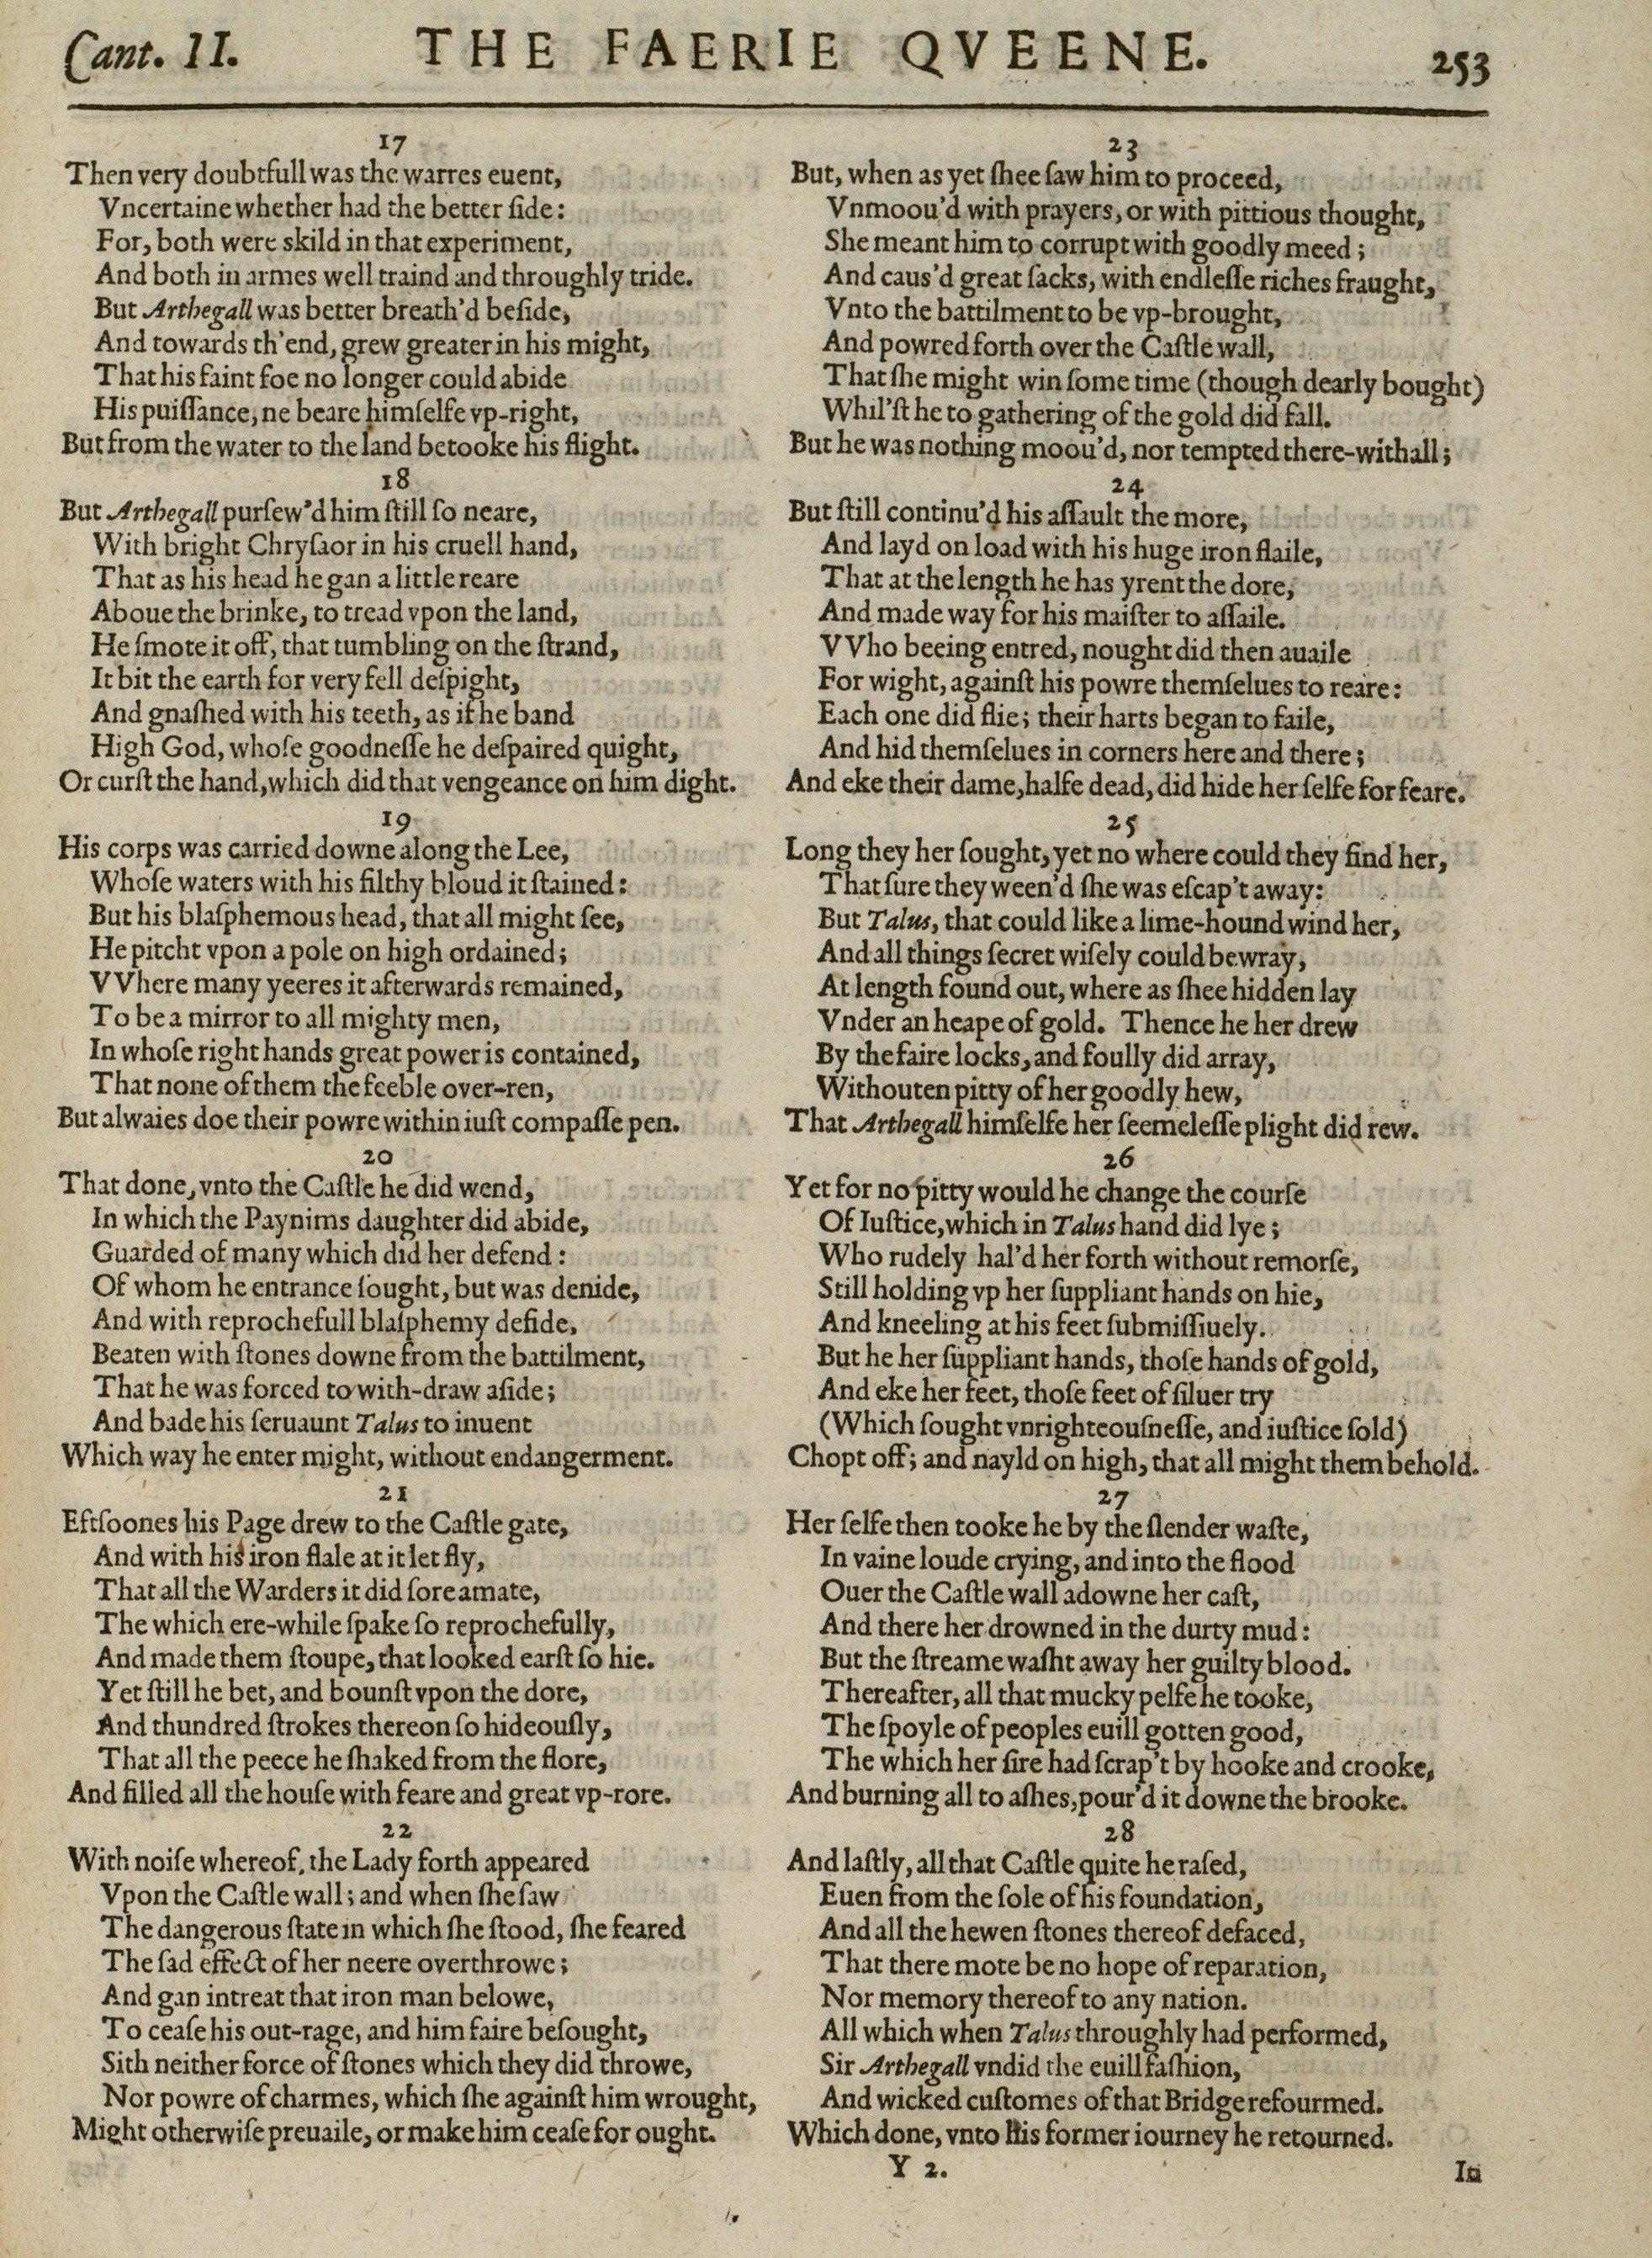 Cant. II. THE FAERIE QVEENE. 253
17
Then very doubtfull was the warres euent,
Vncertaine whether had the better ſide:
For, both were skild in that experiment,
And both in armes well traind and throughly tride.
But Arthegall was better breath'd beſide,
And towards th'end, grew greater in his might,
That his faint foe no longer could abide
His puiſſance, ne beare himſelfe vp-right,
But from the water to the land betooke his flight.
18
But Arthegall purſew'd him ſtill ſo neare,
With bright Chryſaor in his cruell hand,
That as his head he gan a little reare
Aboue the brinke, to tread vpon the land,
He ſmote it off, that tumbling on the ſtrand,
It bit the earth for very fell deſpight,
And gnaſhed with his teeth, as if he band
High God, whoſe goodneſſe he deſpaired quight,
Or curſt the hand, which did that vengeance on him dight.
19
His corps was carried downe along the Lee,
Whoſe waters with his filthy bloud it ſtained:
But his blaſphemous head, that all might ſee,
He pitcht vpon a pole on high ordained;
VVhere many yeeres it afterwards remained,
To be a mirror to all mighty men,
In whoſe right hands great power is contained,
That none of them the feeble over-ren,
But alwaies doe their powre within iuſt compaſſe pen.
20
That done, vnto the Caſtle he did wend,
In which the Paynims daughter did abide,
Guarded of many which did her defend:
Of whom he entrance ſought, but was denide,
And with reprochefull blaſphemy defide,
Beaten with ſtones downe from the battilment,
That he was forced to with-draw aſide;
And bade his ſeruaunt Talus to inuent
Which way he enter might, without endangerment.
21
Eftſoones his Page drew to the Caſtle gate,
And with his iron flale at it let fly,
That all the Warders it did ſore amate,
The which ere-while ſpake ſo reprochefully,
And made them ſtoupe, that looked earſt ſo hie.
Yet ſtill he bet, and bounſt vpon the dore,
And thundred ſtrokes thereon ſo hideouſly,
That all the peece he ſhaked from the flore,
And filled all the houſe with feare and great vp-rore.
22
With noiſe whereof, the Lady forth appeared
Vpon the Caſtle wall; and when ſhe ſaw
The dangerous ſtate in which ſhe ſtood, ſhe feared
The ſad effect of her neere overthrowe;
And gan intreat that iron man belowe,
To ceaſe his out-rage, and him faire beſought,
Sith neither force of ſtones which they did throwe,
Nor powre of charmes, which ſhe againſt him wrought,
Might otherwiſe preuaile, or make him ceaſe for ought.
23
But, when as yet ſhee ſaw him to proceed,
Vnmoou'd with prayers, or with pittious thought,
She meant him to corrupt with goodly meed;
And caus'd great ſacks, with endleſſe riches fraught,
Vnto the battilment to be vp-brought,
And powred forth over the Caſtle wall,
That ſhe might win ſome time (though dearly bought)
Whil'ſt he to gathering of the gold did fall.
But he was nothing moou'd, nor tempted there-withall;
24
But ſtill continu'd his aſſault the more,
And layd on load with his huge iron flaile,
That at the length he has yrent the dore,
And made way for his maiſter to aſſaile.
VVho beeing entred, nought did then auaile
For wight, againſt his powre themſelues to reare:
Each one did flie; their harts began to faile,
And hid themſelues in corners here and there;
And eke their dame, halfe dead, did hide her ſelfe for feare.
25
Long they her ſought, yet no where could they find her,
That ſure they ween'd ſhe was eſcap't away:
But Talus, that could like a lime-hound wind her,
And all things ſecret wiſely could bewray,
At length found out, where as ſhee hidden lay
Vnder an heape of gold. Thence he her drew
By the faire locks, and foully did array,
Withouten pitty of her goodly hew,
That Arthegall himſelfe her ſeemeleſſe plight did rew.
26
Yet for no pitty would he change the courſe
Of Iuſtice, which in Talus hand did lye;
Who rudely hal'd her forth without remorſe,
Still holding vp her ſuppliant hands on hie,
And kneeling at his feet ſubmiſſiuely.
But he her ſuppliant hands, thoſe hands of gold,
And eke her feet, thoſe feet of ſiluer try
(Which ſought vnrighteouſneſſe, and iuſtice ſold)
Chopt off; and nayld on high, that all might them behold.
27
Her ſelfe then tooke he by the ſlender waſte,
In vaine loude crying, and into the flood
Ouer the Caſtle wall adowne her caſt,
And there her drowned in the durty mud:
But the ſtreame waſht away her guilty blood.
Thereafter, all that mucky pelfe he tooke,
The ſpoyle of peoples euill gotten good,
The which her ſire had ſcrap't by hooke and crooke,
And burning all to aſhes, pour'd it downe the brooke.
28
And laſtly, all that Caſtle quite he raſed,
Euen from the ſole of his foundation,
And all the hewen ſtones thereof defaced,
That there mote be no hope of reparation,
Nor memory thereof to any nation.
All which when Talus throughly had performed,
Sir Arthegall vndid the euill faſhion,
And wicked cuſtomes of that Bridge refourmed.
Which done, vnto his former iourney he retourned.
Y 2. In